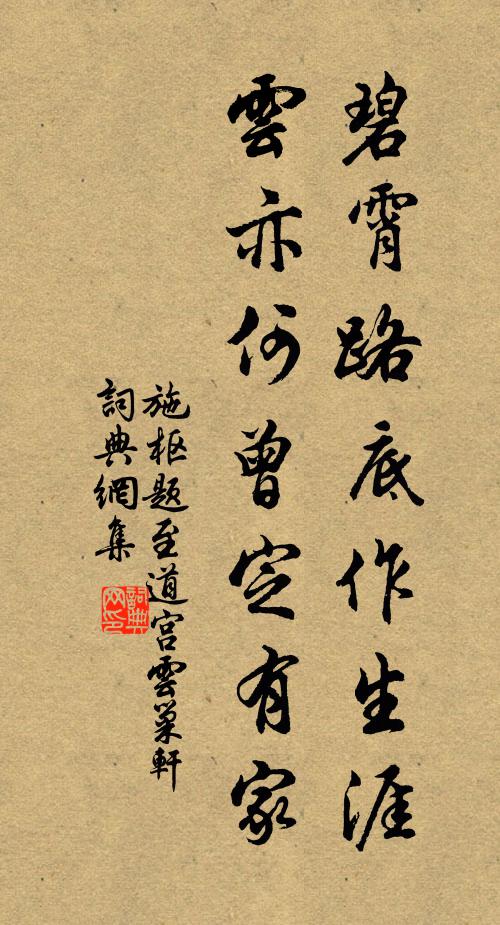 碧霄路底作生涯
雲亦何曾定有家
施枢题至道宮雲巢軒
詞典網集
詞典网印